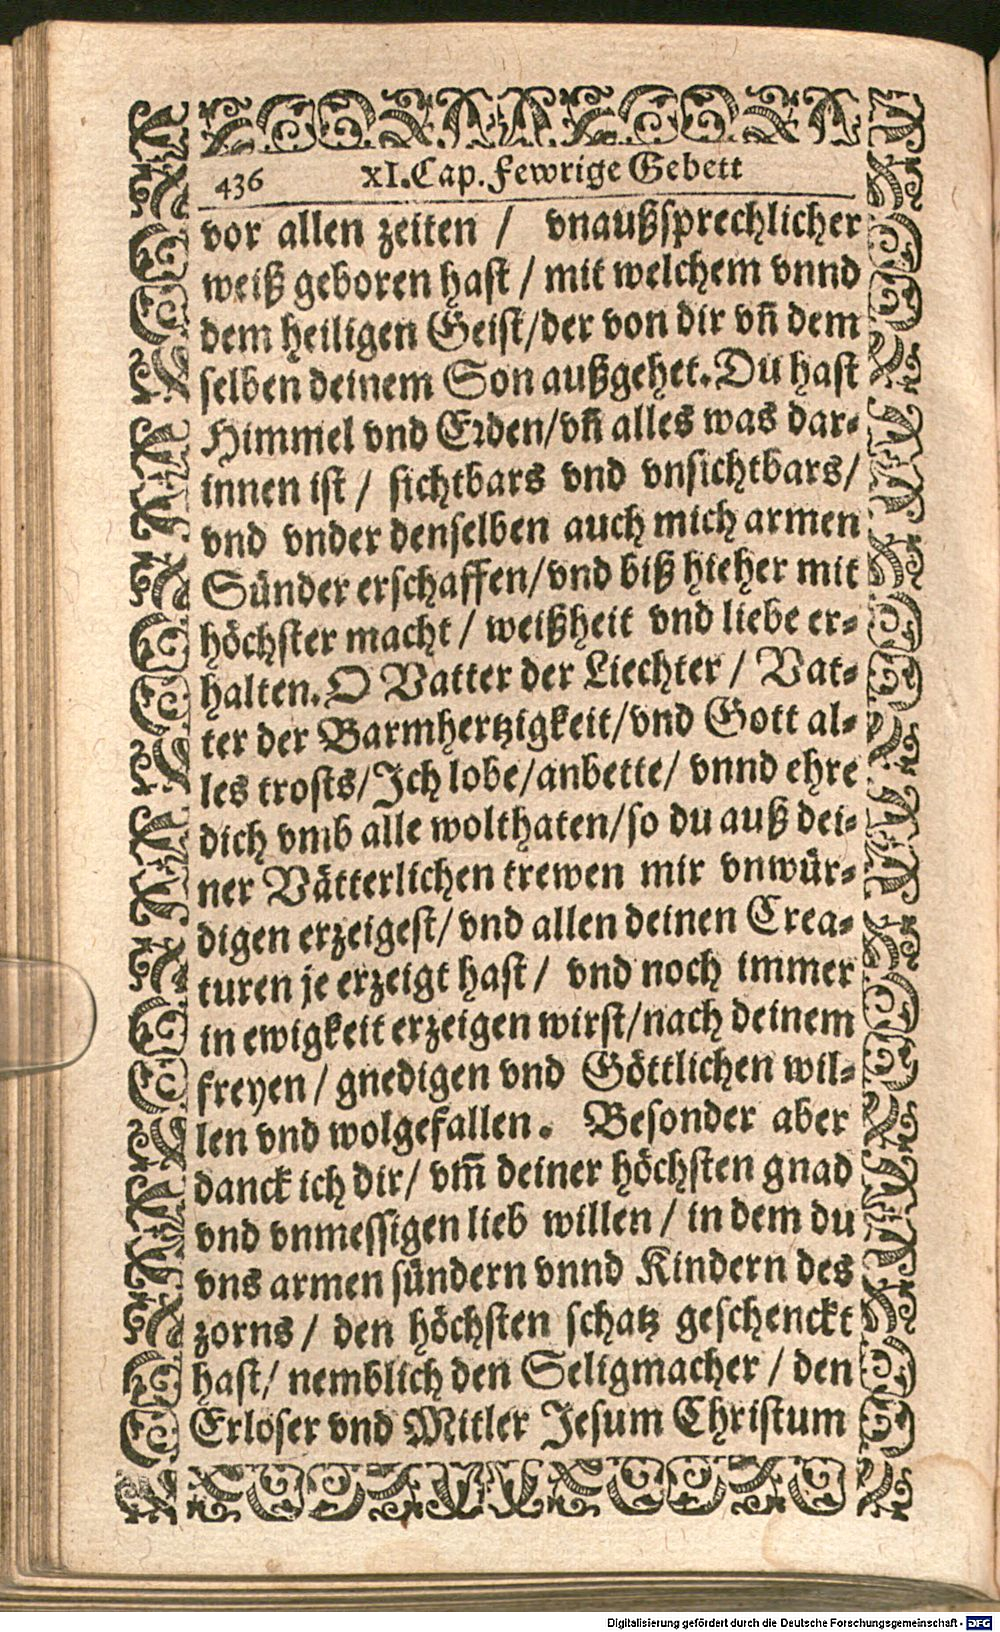 436 xI. Cap. Fewrige Gebett
vor allen zeiten / vnaußsprechlicher
weiß geboren hast / mit welchem vnnd
dem heiligen Geist/der von dir vñ dem
selben deinem Son außgehet. Du hast
Himmel vnd Erden/vñ alles was dar⸗
innen ist / sichtbars vnd vnsichtbars/
vnd vnder denselben auch mich armen
Sünder erschaffen/vnd biß hieher mit
höchster macht / weißheit vnd liebe er⸗
halten. O Vatter der Liechter / Vat⸗
ter der Barmhertzigkeit/vnd Gott al⸗
les trosts/Ich lobe/anbette/ vnnd ehre
dich vmb alle wolthaten/so du auß dei⸗
ner Vätterlichen trewen mir vnwür⸗
digen erzeigest/ vnd allen deinen Crea⸗
turen je erzeigt hast / vnd noch immer
in ewigkeit erzeigen wirst/nach deinem
freyen / gnedigen vnd Göttlichen wil⸗
len vnd wolgefallen. Besonder aber
danck ich dir/ vm̃ deiner höchsten gnad
vnd vnmessigen lieb willen / in dem du
vns armen sündern vnnd Kindern des
zorns / den höchsten schatz geschenckt
hast/ nemblich den Seligmacher / den
Erloser vnd Mitler Jesum Christum
Digitalisierung gefördert durch die Deutsche Forschungsgemeinschaft - DFG